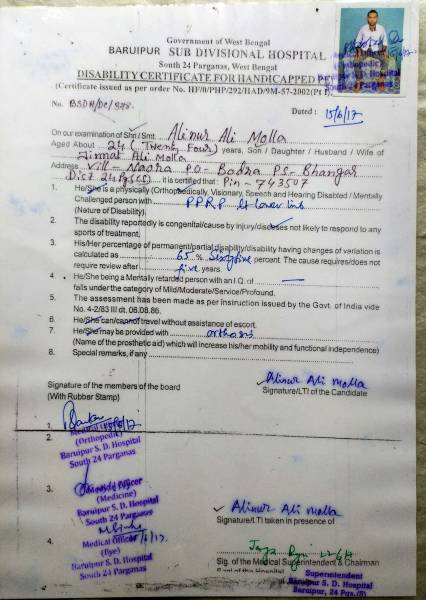 Government of West Bengal
BARUIPUR SUB DIVISIONAL HOSPITAL
South 24 Parganas, West Bengal
DISABILITY CERTIFICATE FOR HANDICAPPED
(Certificate issued as per order No. HF/0/PHP/292/HAD/9M-57-2002(Pt I)
No. BSDH/DC/
Dated : 15/6/17
On our examination of Shri / Smt. Alinur Ali Molla
Aged About 24 (Twenty Four) years, Son / Daughter / Husband / Wife of
Jinnat Ali Molla
Address Vill - Naora P.O - Bodra P.S - Bhangar
Dist 24 Pgs(S) it is certified that : Pin - 743507
1. He/She is a physically (Orthopedically, Visionary, Speech and Hearing Disabled / Mentally
Challenged person with PPRP Lt Lower limb
(Nature of Disability).
2. The disability reportedly is congenital/cause by injury/diseases not likely to respond to any
sports of treatment.
3. His/Her percentage of permanent/partial disability/disability having changes of variation is
calculated as 65 % Sixty five percent. The cause requires/does not
require review after five years.
4. He/She being a Mentally retarded person with an I.Q. of —
falls under the category of Mild/Moderate/Service/Profound.
5. The assessment has been made as per instruction issued by the Govt. of India vide
No. 4-2/83 III dt. 06.08.86.
6. He/She can/cannot travel without assistance of escort.
7. He/She may be provided with orthosis
(Name of the prosthetic aid) which will increase his/her mobility and functional independence)
8. Special remarks, if any
Signature of the members of the board
(With Rubber Stamp)
Alinur Ali Molla
Signature/LTI of the Candidate
1.
(Orthopedic)
Baruipur S. D. Hospital
South 24 Parganas
2.
3.
Medical Officer
(Medicine)
Baruipur S. D. Hospital
South 24 Parganas
Alinur Ali Molla
Signature/LTI taken in presence of
4.
Medical Officer
(Eye)
Baruipur S. D. Hospital
South 24 Parganas
Sig. of the Medical Superintendent & Chairman
Superintendent
Baruipur S. D. Hospital
Baruipur, 24 Pgs.(S)